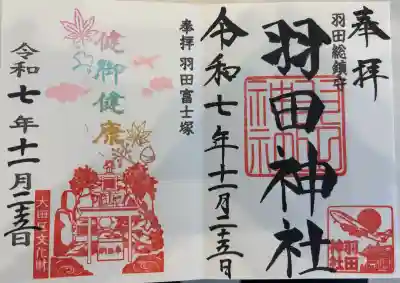 奉拝
羽田総鎮守
羽田神社
令和七年十一月二十五日
奉拝 羽田富士塚
健御健康
令和七年十一月二十五日
大田区文化財
羽田
神社